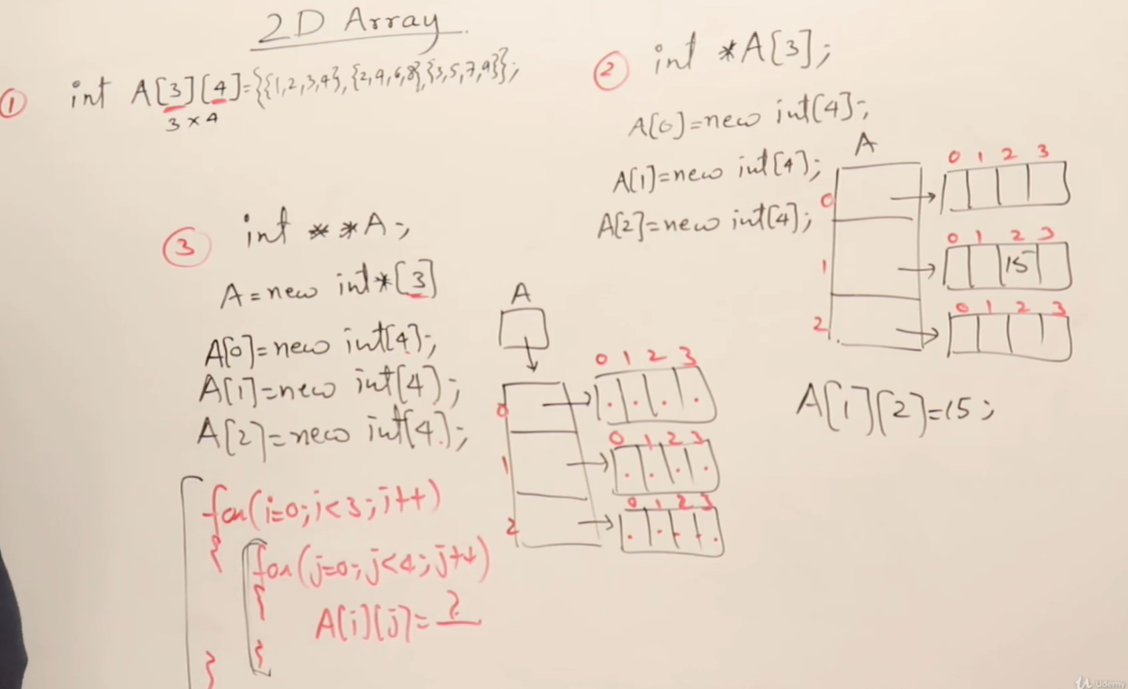 2D Array
① int A[3][4]={{1,2,3,4},{2,4,6,8},{3,5,7,9}};
3×4
② int *A[3];
A[0]=new int[4];
A[1]=new int[4];
A[2]=new int[4];
A
0 1 2 3
0
0 1 2 3
1 15
0 1 2 3
2
A[1][2]=15;
③ int **A;
A=new int*[3]
A[0]=new int[4];
A[1]=new int[4];
A[2]=new int[4];
A
0 1 2 3
0
0 1 2 3
1
0 1 2 3
2
for(i=0;i<3;i++)
{
for(j=0;j<4;j++)
{
A[i][j]=?
}
}
Udemy